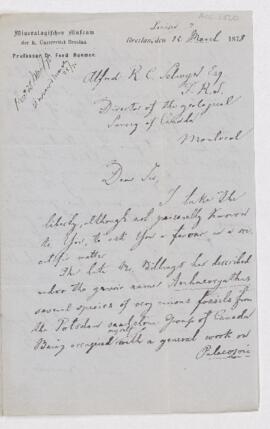 Mineralogisches Museum
der K. Universität Breslau
Professor Dr. Ferd. Roemer.
Breslau, den 12 March 1878
Alfred R. C. Selwyn Esq
F.R.S.
Director of the geological
Survey of Canada
Montreal
Dear Sir,
I take the
liberty, although not personally known
to You, to ask You a favour in a
matter
The late Mr. Billings has described
under the generic name Archaeocyathus
several species of very curious fossils from
the Potsdam sandstone Group of Canada
Being occupied myself with a general work on
Palaeozoic